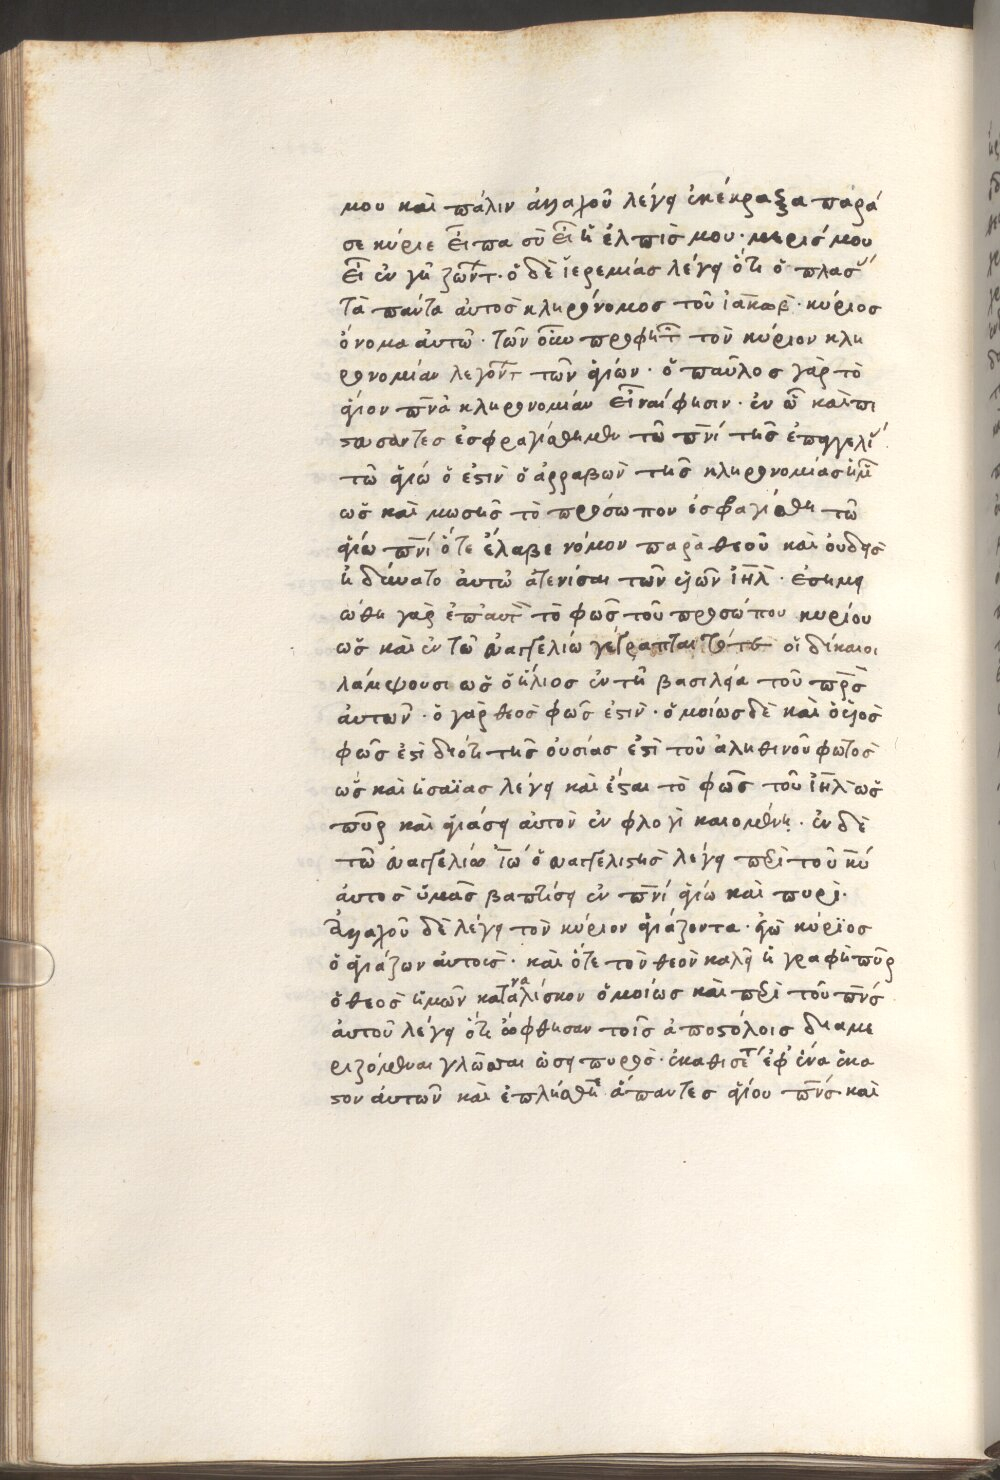 μου καὶ πάλιν ἀλλαχοῦ λέγει ἐκέκραξα παρά
σε κύριε εἶπα σῦ εἶ ἡ ἐλπίς μου · μερίς μου
εἶ ἐν γῆ ζώντ · ὁ δὲ ἱερεμίας λέγει ὅτι ὁ πλασ
τὰ πάντα ἀυτὸς κληρονόμος τοῦ ἰακώβ · κύριος
ὄνομα ἀυτῶ · τῶν οὖν προφητ τὸν κύριον κλη
ρονομίαν λεγόντ τῶν ἁγίων · ὁ παῦλος γὰρ τὸ
ἅγιον πνα κληρονομίαν εἶναί φησιν · ἐν ὧ καὶ πι
στευσαντες ἐσφραγίσθημεν τῶ πνι τῆς ἐπαγγελι
τῶ ἁγίω ὅ ἐστιν ὁ ἀρραβὼν τῆς κληρονομίας ἡμ
ὡς καὶ μωσῆς τὸ πρόσωπον ἐσφαγίσθη τῶ
ἁγίω πνι ὅτε ἔλαβε νόμον παρὰ θεοῦ καὶ ὀυδεὶς
ἠ δύνατο ἀυτῶ ἀτενίσαι τῶν υἱῶν ιηλ · ἐσημει
ώθη γὰρ ἐπ ἀυτ τὸ φῶς τοῦ προσώπου κυρίου
ὡς καὶ ἐν τῶ ἐυαγγελίω γέγραπται τότε οἱ δίκαιοι
λάμψουσι ὡς ὁ ἥλιος ἐν τῆ βασιλεία τοῦ πρς
ἀυτῶν · ὁ γὰρ θεὸς φῶς ἐστιν · ὁμοίως δὲ καὶ ὁ υἱὸς
φῶς ἐστὶ διότι τῆς ὀυσίας ἐστὶ τοῦ ἀληθινοῦ φωτὸς
ὡς καὶ ἡσαΐας λέγει καὶ ἔσται τὸ φῶς τοῦ ιηλ ὡς
πῦρ καὶ ἁγιάσει ἀυτὸν ἐν φλογὶ καιομένη · ἐν δὲ
τῶ ἐυαγγελίω ιω ὁ ἐυαγγελιστὴς λέγει περὶ τοῦ κυ
ἀυτὸς ὑμᾶς βαπτίσει ἐν πνι ἁγίω καὶ πυρί ·
Ἀλλαχοῦ δὲ λέγει τὸν κύριον ἁγιάζοντα · ἐγὼ κύρϊος
ὁ ἁγιάζων ἀυτοὺς · καὶ ὅτε τὸν θεὸν καλεῖ ἡ γραφὴ πῦρ
ὁ θεὸς ἡμῶν καταναλίσκον ὁμοίως καὶ περὶ τοῦ πνς
ἀυτοῦ λέγει ὅτι ὤφθησαν τοῖς ἀποστόλοις διαμε
ριζόμεναι γλῶσσαι ὡσεὶ πυρὸς · ἐκαθισέ τ ἐφ ἕνα ἕκα
στον ἀυτῶν καὶ ἐπλήσθη ἅπαντες ἁγίου πνς καὶ